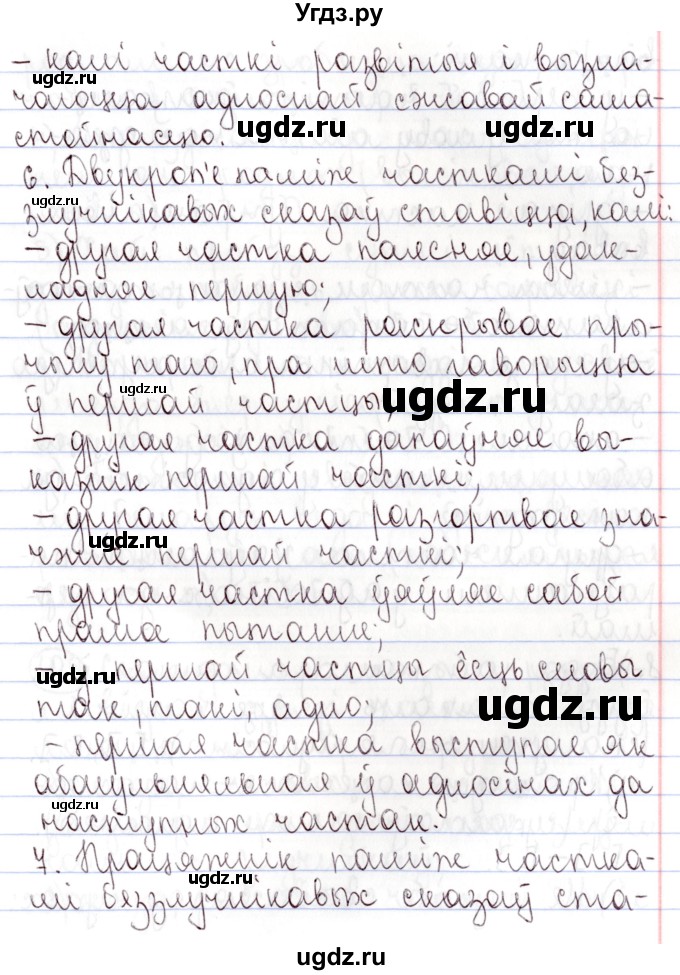 Угдз.ру
– калі часткі развітыя і вызна-
чаюцца адноснай сэнсавай сама-
стойнасцю.
6. Двукроп'е паміж часткамі бяз-
злучнікавых сказаў ставіцца, калі:
– другая частка паясняе, удак-
ладняе першую;
– другая частка раскрывае пры-
чыну таго, пра што гаворыцца
ў першай частцы;
– другая частка дапаўняе вы-
казнік першай часткі;
– другая частка разгортвае зна-
чэнне першай часткі;
– другая частка ўяўляе сабой
прамое пытанне;
– у першай частцы ёсць словы
так, такі, адно;
– першая частка выступае як
абагульняльная ў адносінах да
наступных частак.
7. Працяжнік паміж частка-
мі бяззлучнікавых сказаў ста-
ugdz.ru
ugdz.ru
ugdz.ru
ugdz.ru
ugdz.ru
ugdz.ru
ugdz.ru
ugdz.ru
ugdz.ru
ugdz.ru
ugdz.ru
ugdz.ru
ugdz.ru